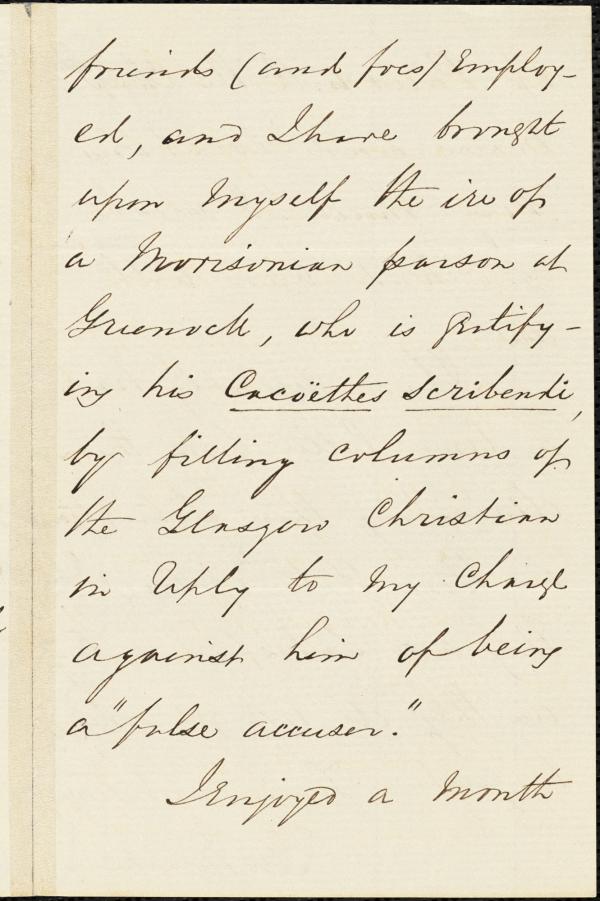 friends (and foes) Employ-
ed, and I have brought
upon Myself the ire of
a Morisonian parson at
Greenock, who is gratify-
ing his Cacoëthes Scribendi,
by filling columns of
the Glasgow Christian
in reply to My Charge
against him of being
a "false accuser."
I Enjoyed a Month